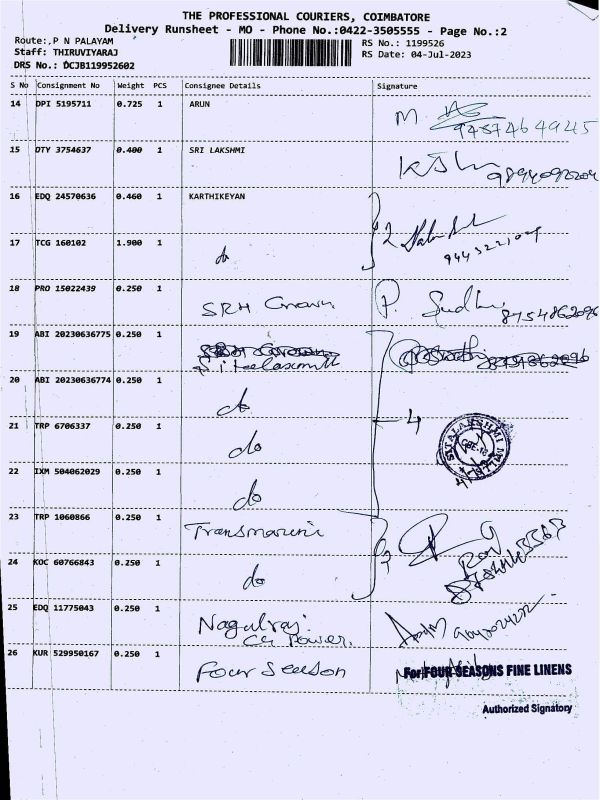 THE PROFESSIONAL COURIERS, COIMBATORE
Delivery Runsheet - MO - Phone No.:0422-3505555 - Page No.:2
Route:,P N PALAYAM
RS No.: 1199526
Staff: THIRUVIYARAJ
RS Date: 04-Jul-2023
DRS No.: DCJB119952602
S No Consignment No Weight PCS Consignee Details Signature
14 DPI 5195711 0.725 1 ARUN M
15 DTY 3754637 0.400 1 SRI LAKSHMI
16 EDQ 24570636 0.460 1 KARTHIKEYAN
17 TCG 160102 1.900 1 do 2
18 PRO 15022439 0.250 1 SRH Crown P. Sudha 8754862096
19 ABI 20230636775 0.250 1
20 ABI 20230636774 0.250 1 do
21 TRP 6706337 0.250 1 do 4
SITALAKSHMI
22 IXM 504062029 0.250 1 do
23 TRP 1060866 0.250 1 Transmarine
24 KOC 60766843 0.250 1 do
25 EDQ 11775043 0.250 1 Nagulraj
CG Power.
26 KUR 529950167 0.250 1 Four Season For FOUR SEASONS FINE LINENS
Authorized Signatory